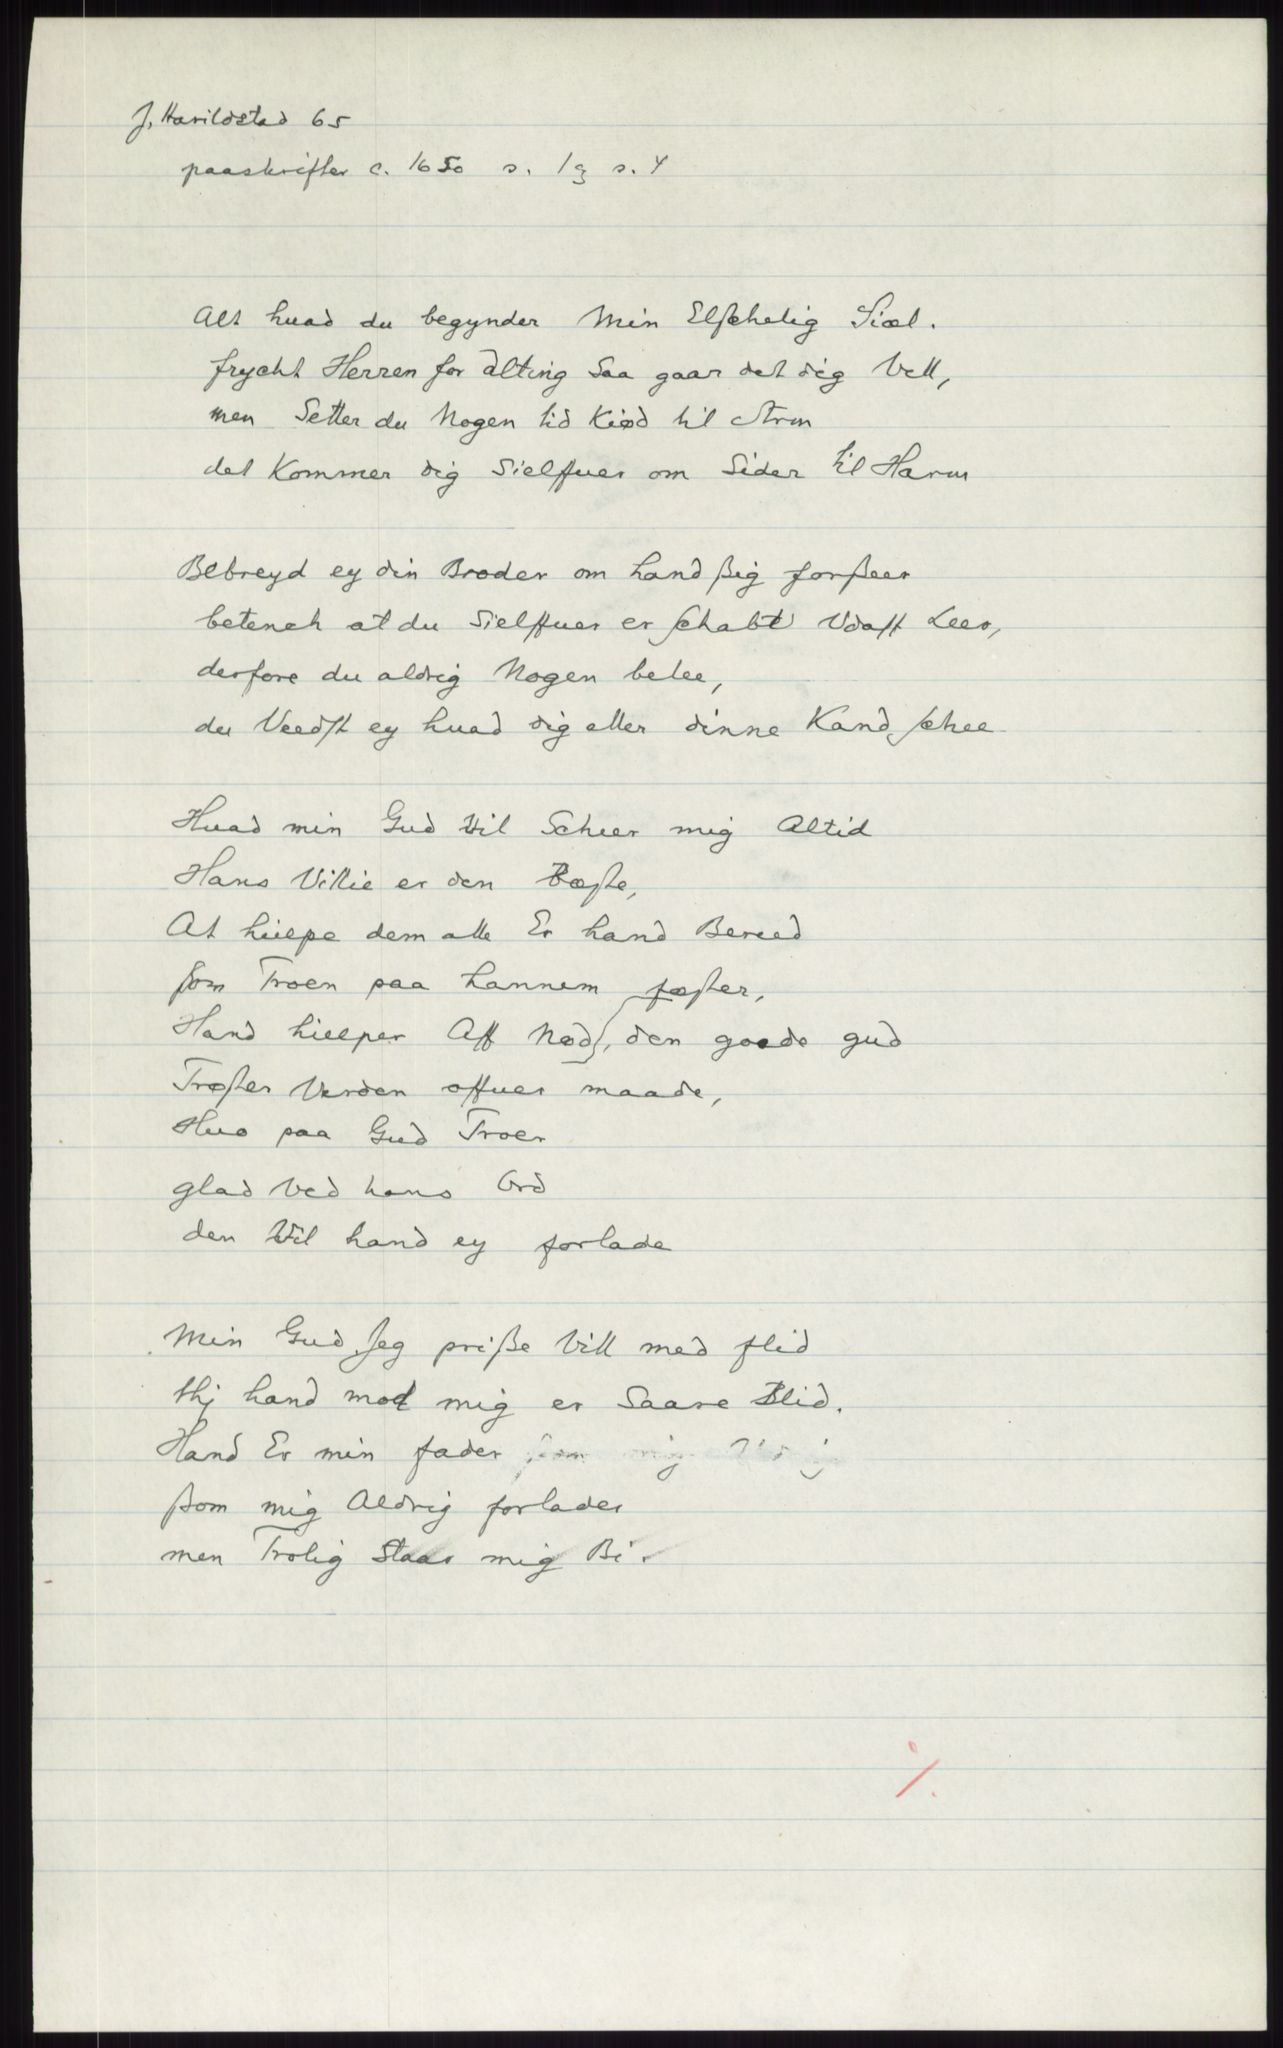 J. Harildstad 65
paaskrifter c. 1650 s. 1 g s. 4
Alt huad du begynder Min Elschelig Siæl.
frycht Herren for alting Saa gaar det dig Vell,
men Setter du Nogen tid Kiød til Arm
det Kommer dig Sielffuer om Sider til Harm
Bebreyd ey din Broder om hand ßig forßeer
betench at du Sielffuer er schabt Vdaff Leer,
derfore du aldrig Nogen belee,
du Veedst ey huad dig eller dinne Kand schee
Huad min Gud Vil Scheer mig Altid
Hans Villie er den Bæste,
At hielpe dem alle Er hand Bereed
som Troen paa hannem fæster,
Hand hielper Aff Nød, den goede gud
Trøster Verden offuer maade,
Huo paa Gud Troer
glad Ved hans Ord
den Vil hand ey forlade
Min Gud Jeg priße Vill med flid
thj hand mod mig er Saare Blid.
Hand Er min fader
ßom mig Aldrig forlader
men Trolig Staar mig Bi.
%